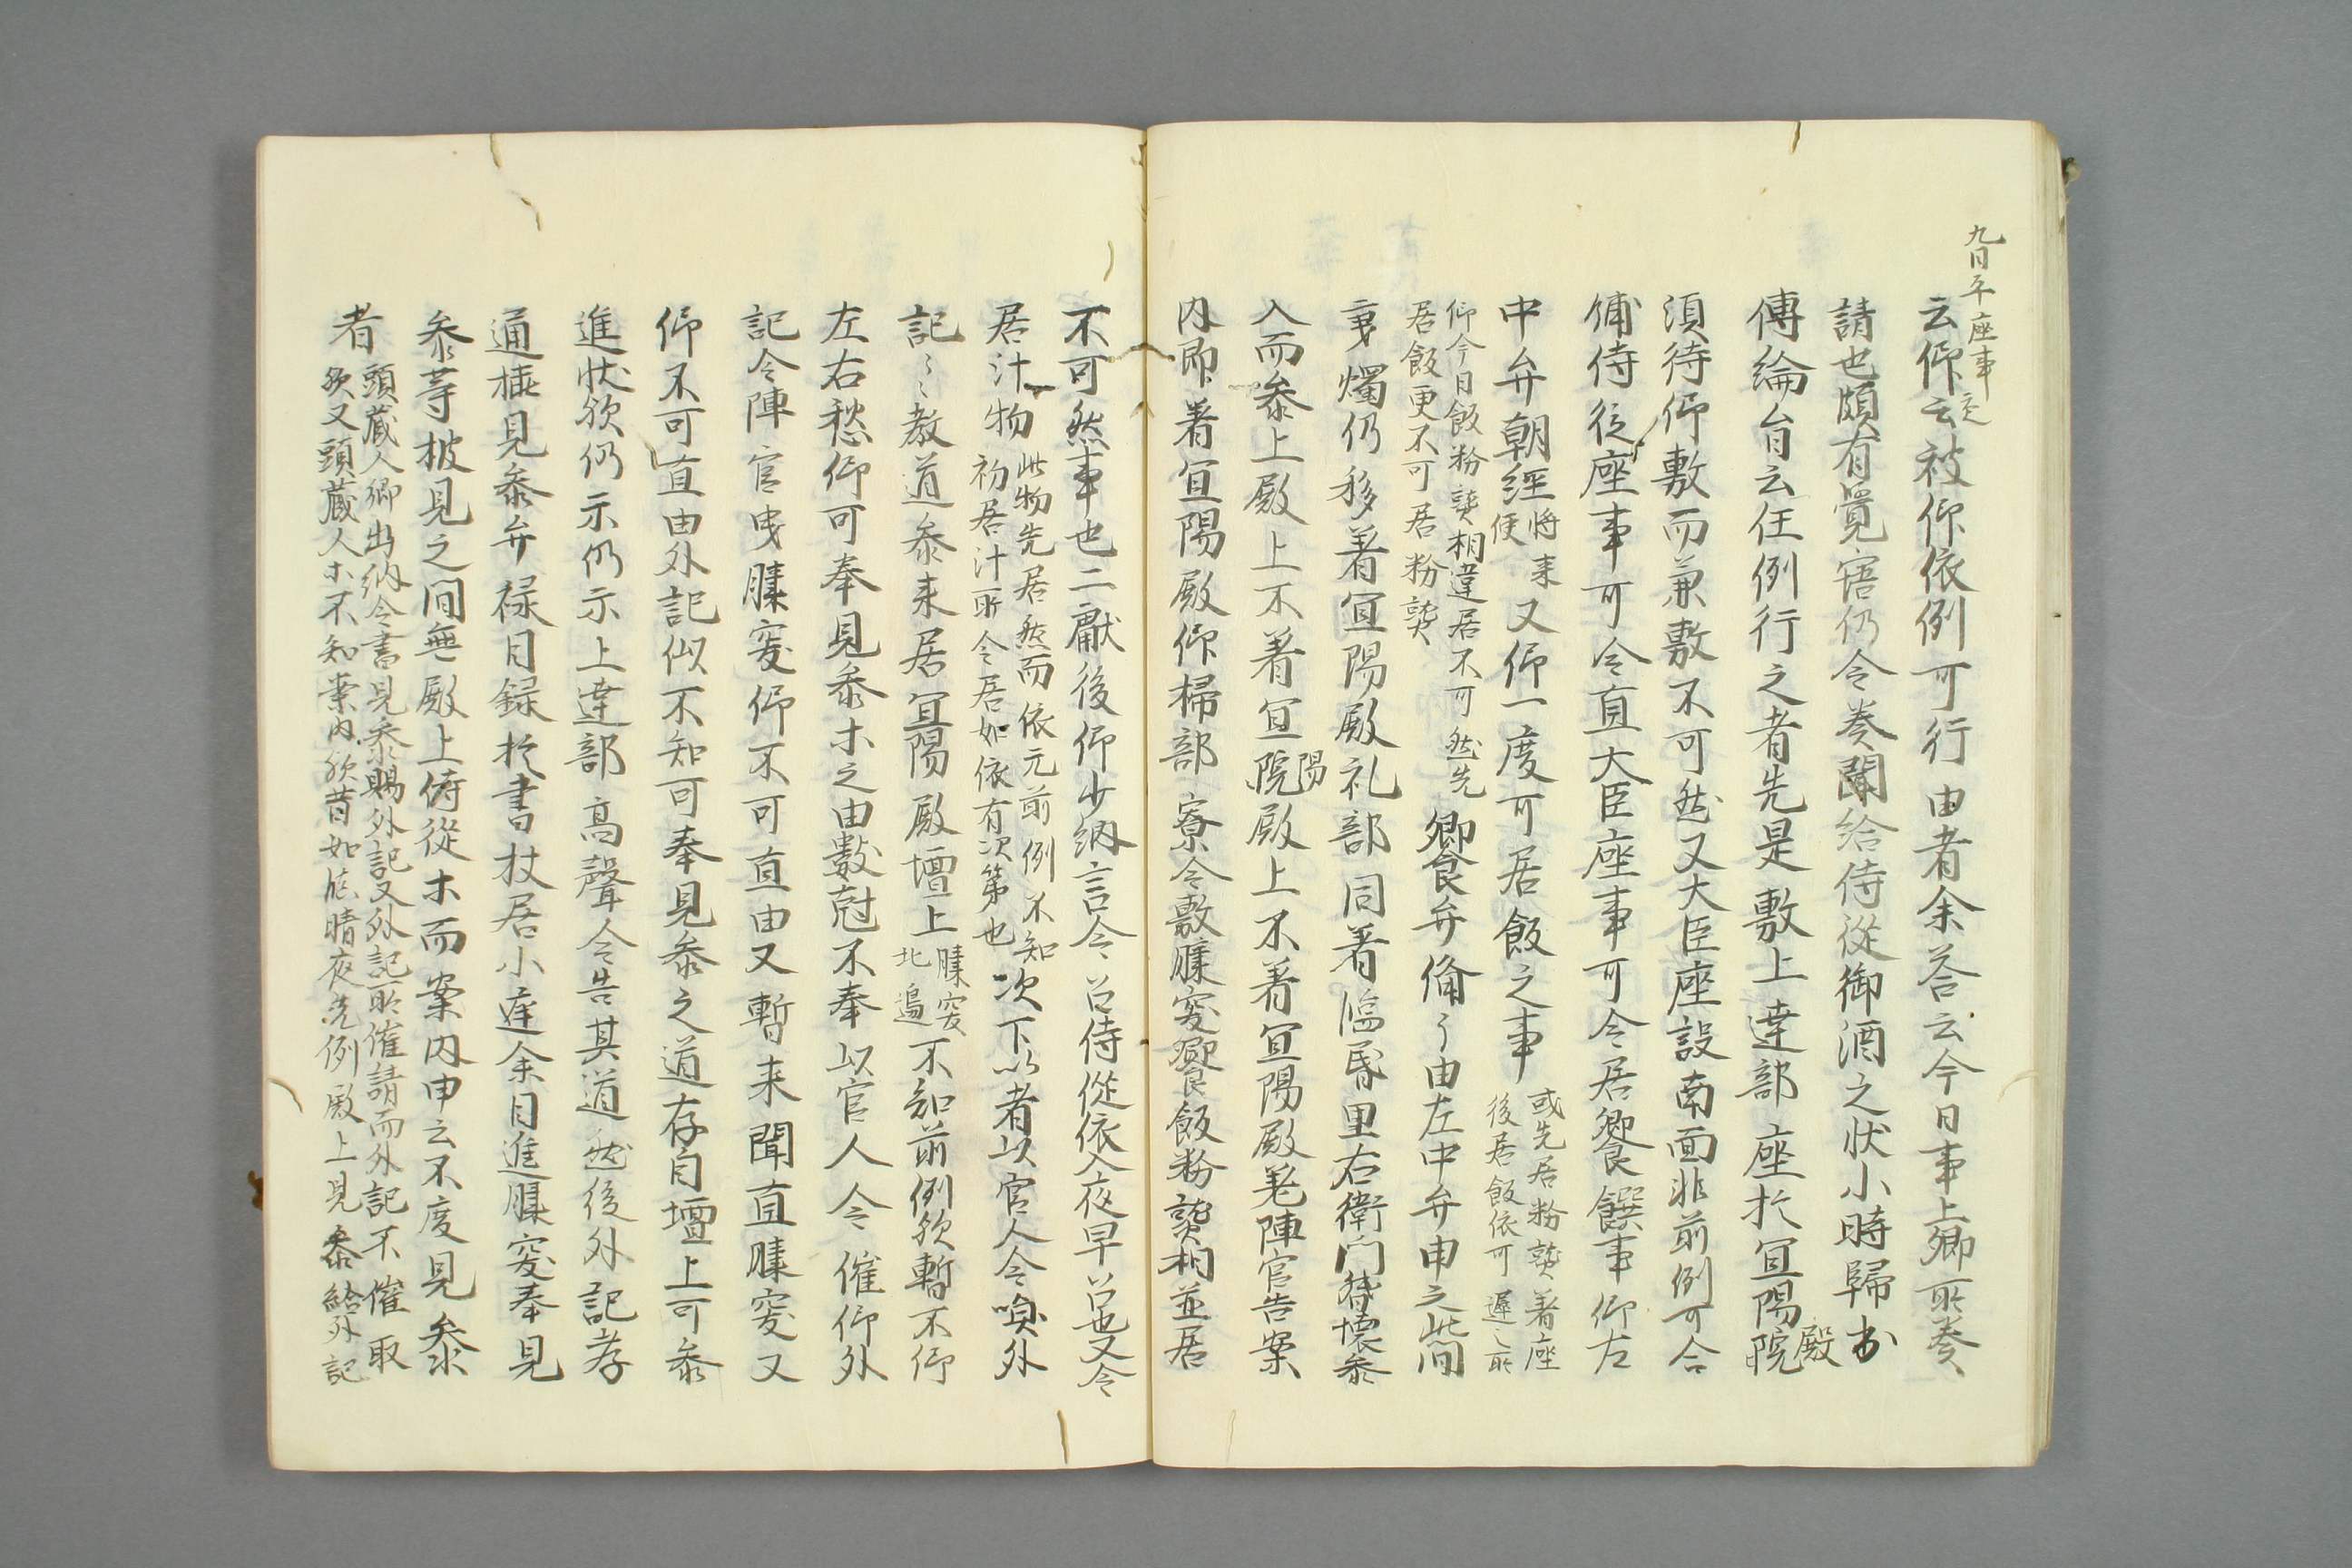 九日平座事
云仰云々被仰依例可行由者余答云今日事上卿所奏
請也頗有覺悟仍令奏聞給侍從御酒之状小時歸出
傳綸旨云任例行之者先是敷上達部座於宜陽院殿
須待仰敷而兼敷不可然又大臣座設南面非前例可令
補侍從座事可令直大臣座事可令居饗饌事仰左
中弁朝經將来便又仰一度可居飯之事或先居粉熟着座
後居飯依可遅々所
仰今日飯粉熟相違居不可然先
居飯更不可居粉熟饗弁備了由左中弁申之此間
秉燭仍移着宜陽殿礼部同着臨昏黒右衛門督懐参
入而参上殿上不着宜院陽殿上不着宜陽殿老陣官告案
内即着宜陽殿仰掃部寮令敷膝突饗飯粉熟相並居
不可然事也二獻後仰少納言令召侍從依入夜早召也又令
居汁物此物先居然而依元前例不知
初居汁所令居如依有次第也次下以者以官人令喚外
記々々教道参来居宜陽殿壇上膝突
北邊不知前例欤暫不仰
左右愁仰可奉見参木之由數尅不奉以官人令催仰外
記令陣官曳膝突仰不可直由又暫来聞直膝突又
仰不可直由外記似不知可奉見参之道存自壇上可参
進状欤仍示仍示上達部高聲令告其道然後外記孝
通插見参弁禄目録於書杖居小庭余目進膝突奉見
参等披見之間無殿上侍從木而案内申云不度見参
者頭蔵人卿出納令書見参賜外記又外記所催請而外記不催取
欤又頭蔵人木不知案内欤昔如底晴夜先例殿上見参給外記